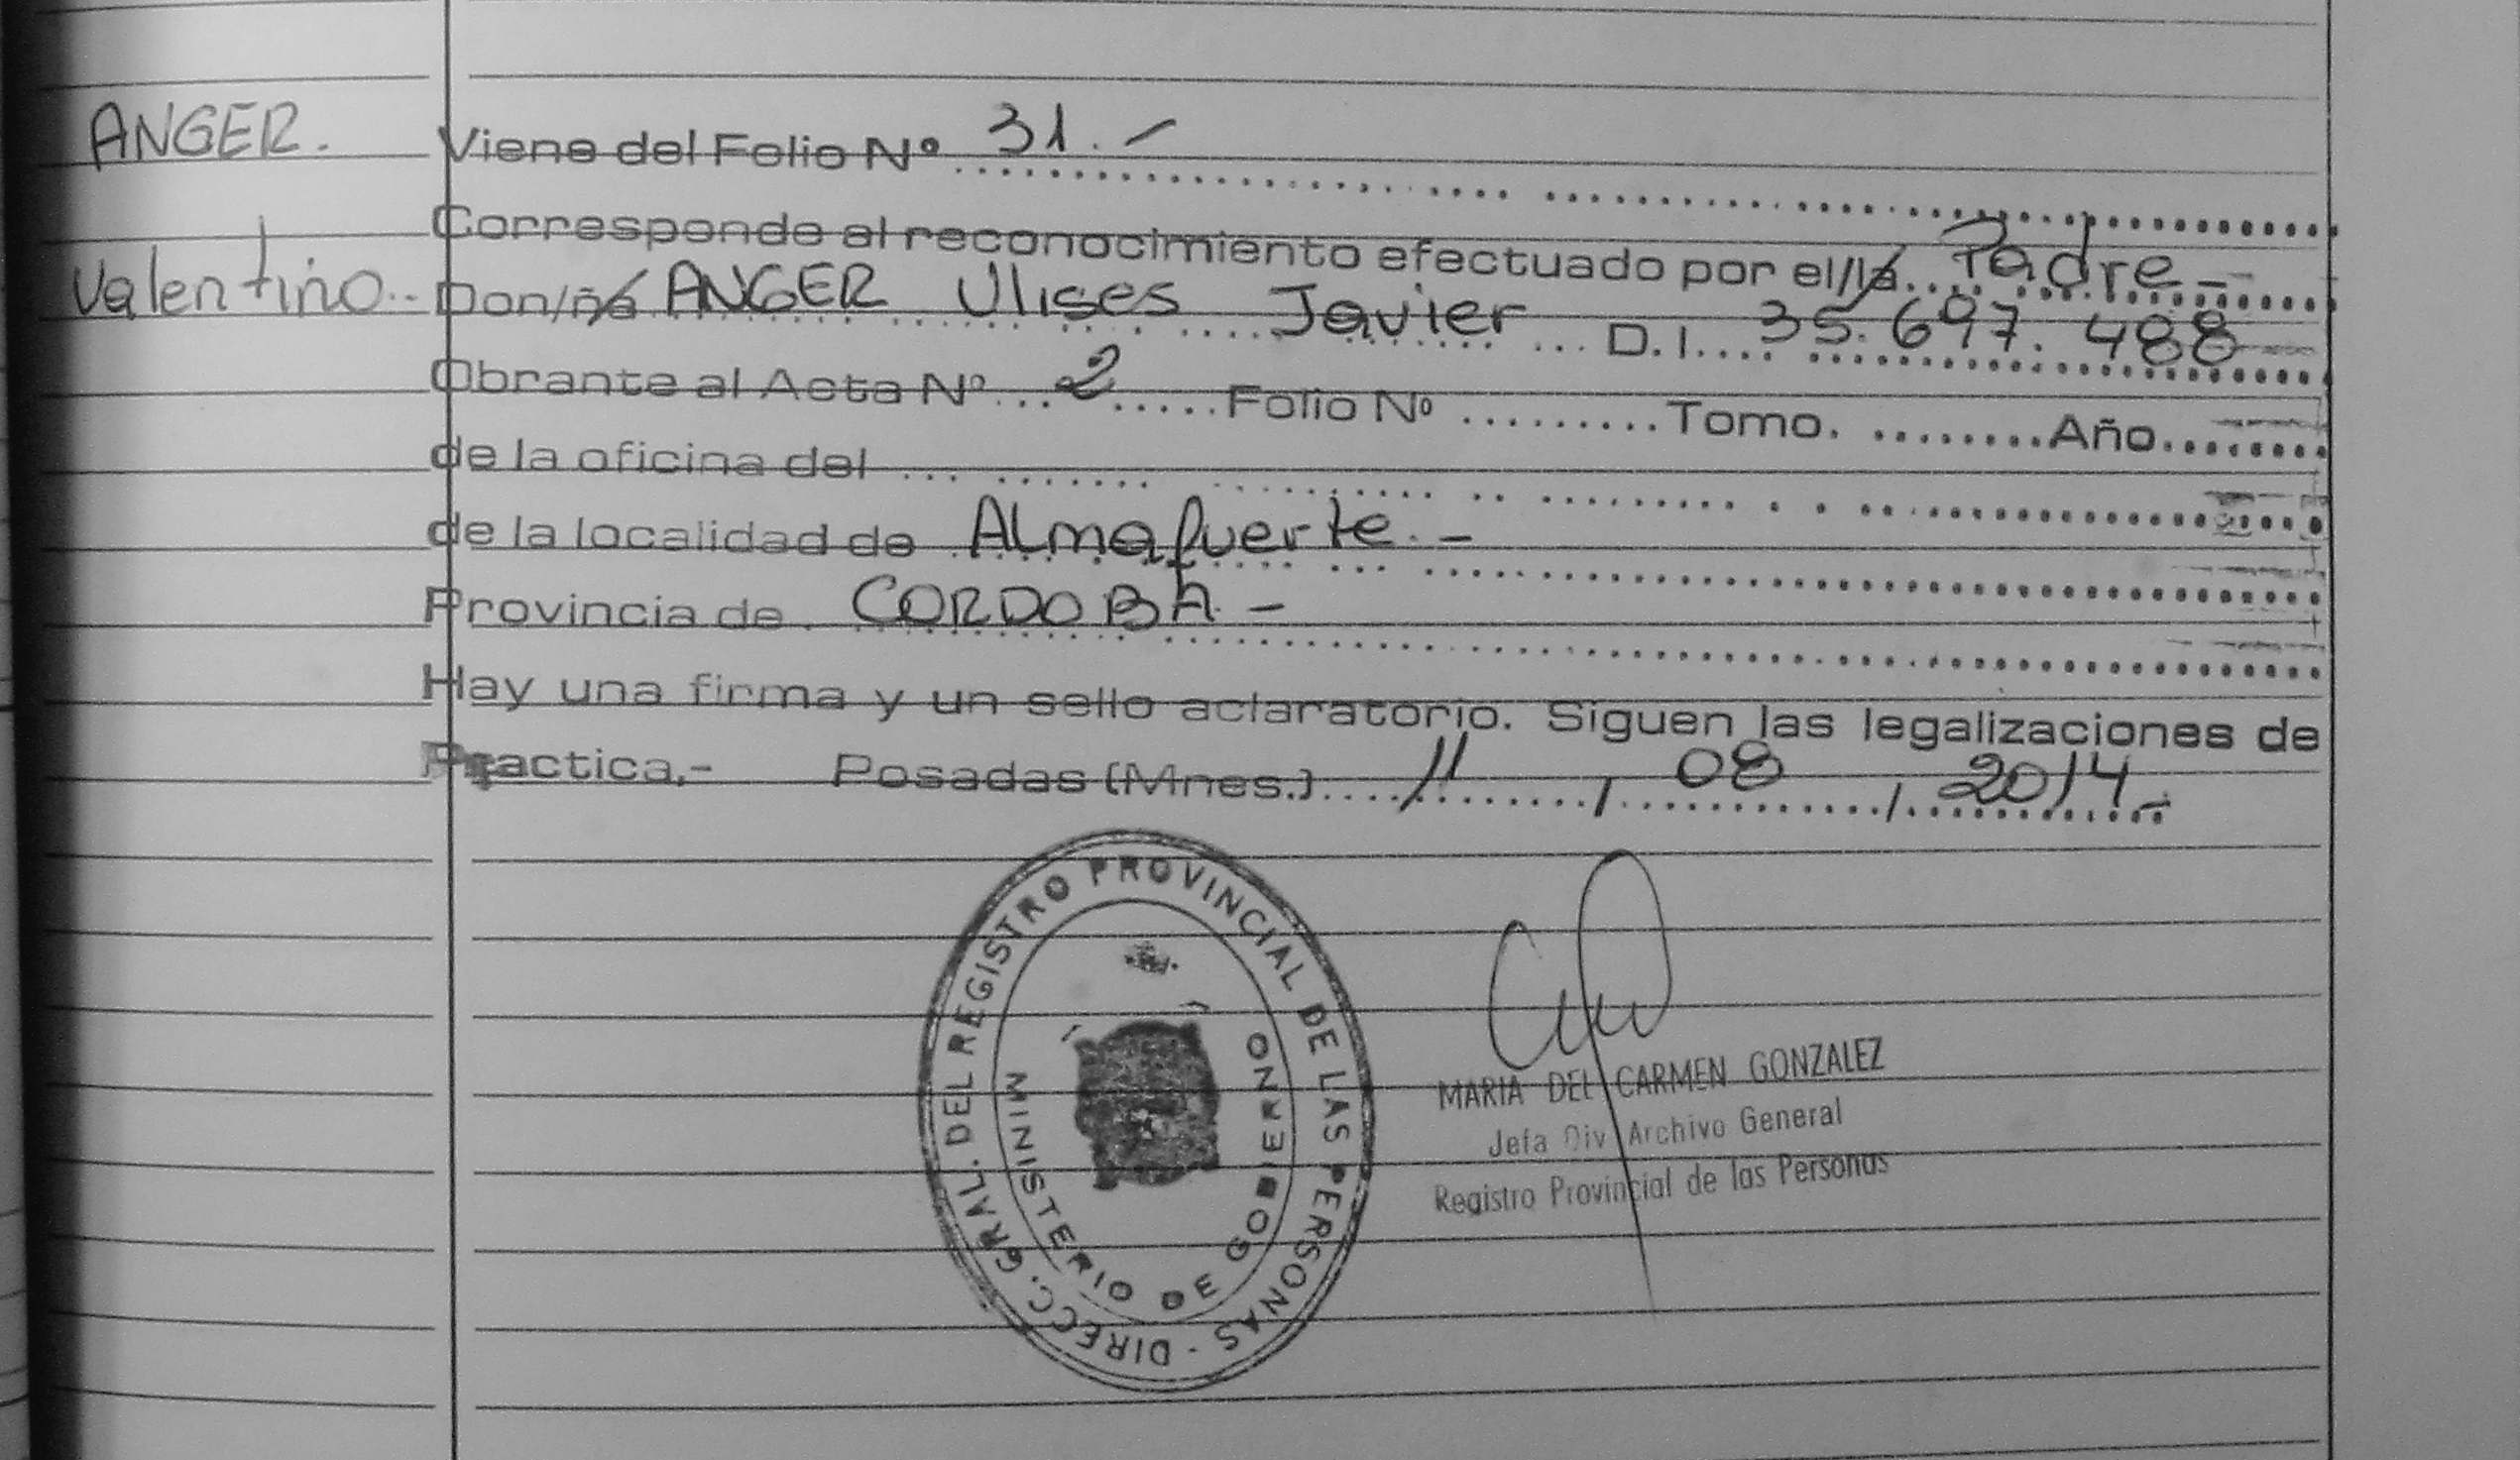 ANGER.
Valentino..
Viene del Folio Nº 31.-
Corresponde al reconocimiento efectuado por el/la Padre-
Don/ña ANGER Ulises Javier D.I. 35.697.488
Obrante al Acta Nº 2 Folio Nº Tomo. Año
de la oficina del
de la localidad de Almafuerte.-
Provincia de CORDOBA.-
Hay una firma y un sello aclaratorio. Siguen las legalizaciones de
Practica,- Posadas (Mnes.) 11 / 08 / 2014.-
DIRECC. GRAL. DEL REGISTRO PROVINCIAL DE LAS PERSONAS -
MINISTERIO DE GOBIERNO
MARIA DEL CARMEN GONZALEZ
Jefa Div Archivo General
Registro Provincial de las Personas